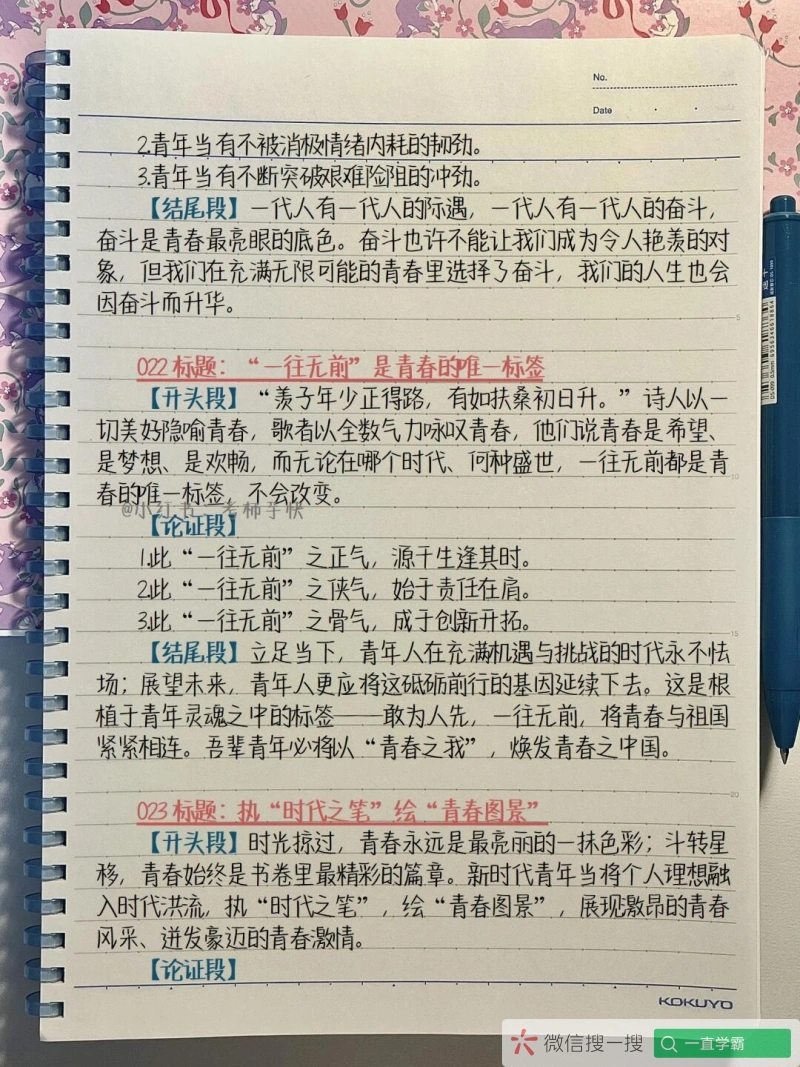 No.
Date
2.青年当有不被消极情绪内耗的韧劲。
3.青年当有不断突破艰难险阻的冲劲。
【结尾段】一代人有一代人的际遇，一代人有一代人的奋斗，
奋斗是青春最亮眼的底色。奋斗也许不能让我们成为令人艳羡的对
象，但我们在充满无限可能的青春里选择了奋斗，我们的人生也会
因奋斗而升华。
5
022标题：“一往无前”是青春的唯一标签
【开头段】“羡子年少正得路，有如扶桑初日升。”诗人以一
切美好隐喻青春，歌者以全数气力咏叹青春，他们说青春是希望、
是梦想、是欢畅，而无论在哪个时代、何种盛世，一往无前都是青
10
春的唯一标签，不会改变。
@小红书：老柿手快
【论证段】
1.此“一往无前”之正气，源于生逢其时。
2.此“一往无前”之侠气，始于责任在肩。
3.此“一往无前”之骨气，成于创新开拓。
15
【结尾段】立足当下，青年人在充满机遇与挑战的时代永不怯
场；展望未来，青年人更应将这砥砺前行的基因延续下去。这是根
植于青年灵魂之中的标签——敢为人先，一往无前，将青春与祖国
紧紧相连。吾辈青年必将以“青春之我”，焕发青春之中国。
20
023标题：执“时代之笔”绘“青春图景”
【开头段】时光掠过，青春永远是最亮丽的一抹色彩；斗转星
移，青春始终是书卷里最精彩的篇章。新时代青年当将个人理想融
入时代洪流，执“时代之笔”，绘“青春图景”，展现激昂的青春
风采、迸发豪迈的青春激情。
【论证段】
KOKUYO
微信搜一搜
一直学霸